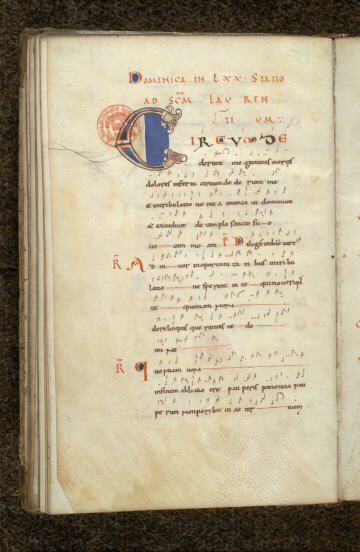 DOMINICA IN LXX. STATIO
AD SCM LAVREN
TIVM
CIRCVMDE
derunt me gemitus mortis
dolores inferni circumdederunt me
& in tribulatione mea invocavi dominum
& exaudivit de templo sancto suo
vocem meam P Diligam te domine
R A diutor in oportunitatibus in tribu
latione sperent in te qui noverunt
te quoniam non
derelinquis querentes te do
mine
R Q uoniam non
in finem oblivio erit pauperis patientia pau
perum non peribit in aeternum